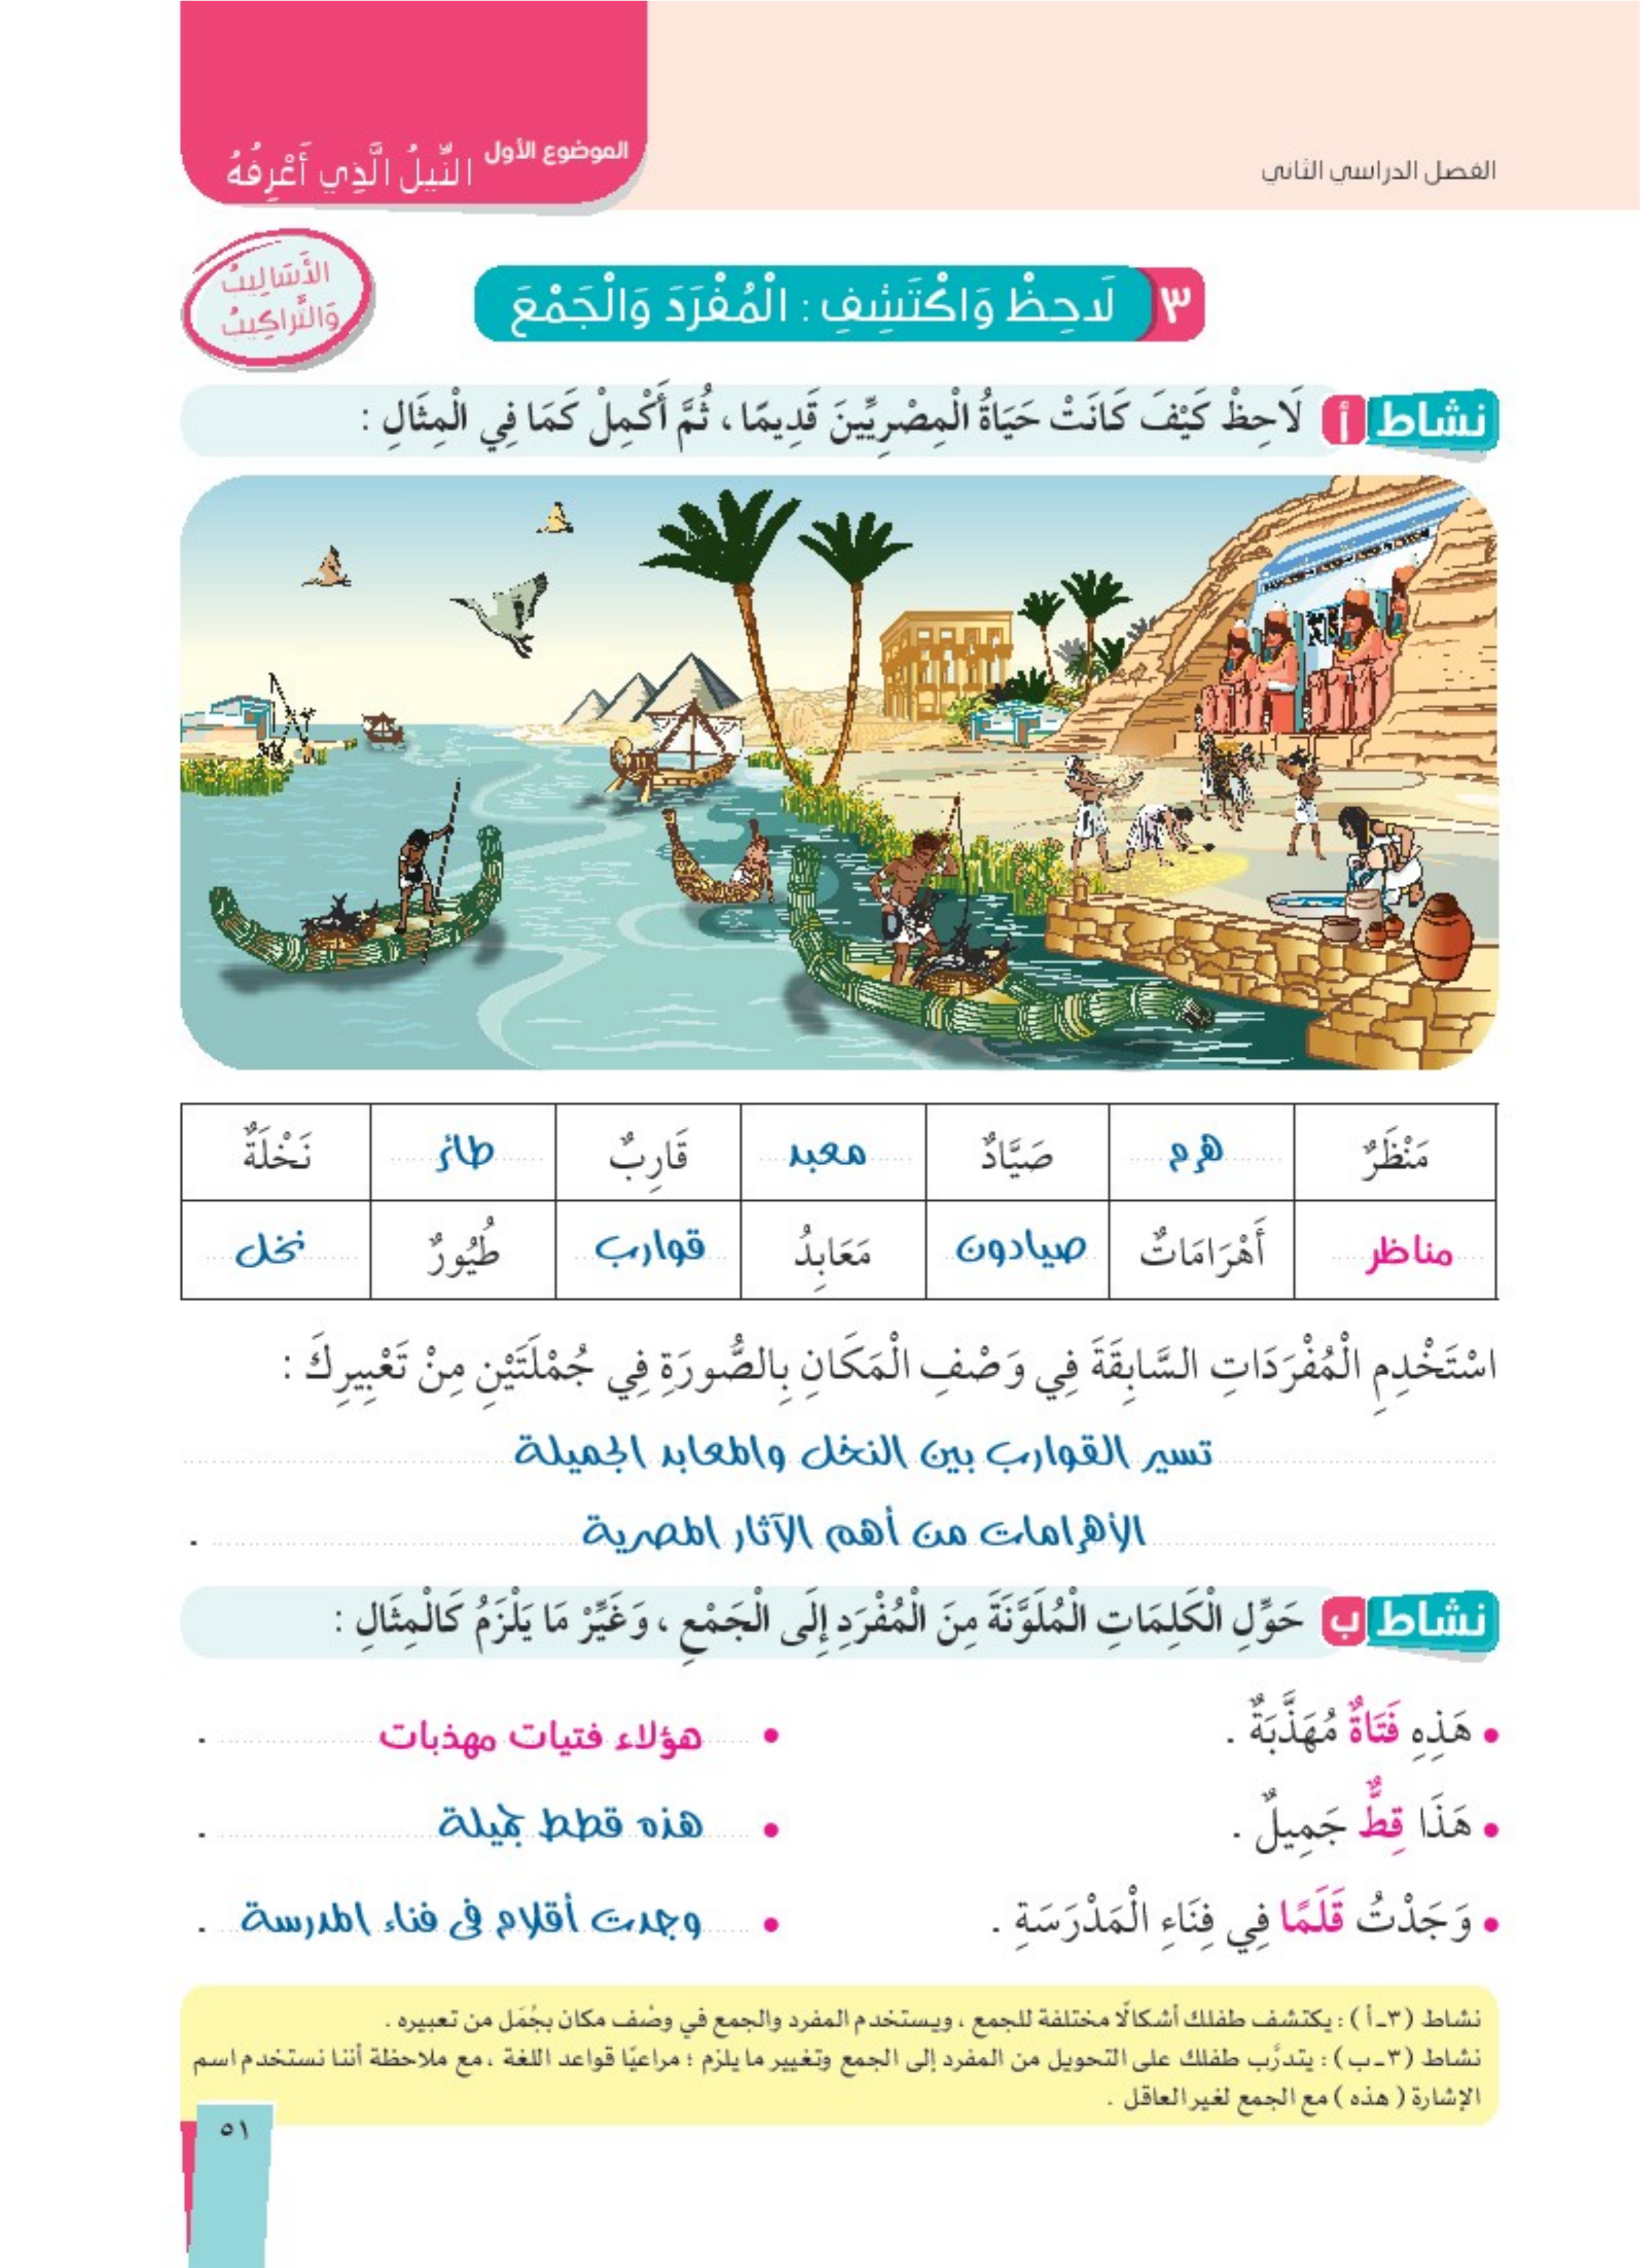 الفصل الدراسي الثاني
الموضوع الأول النِّيلُ الَّذِي أَعْرِفُهُ
الأَسَالِيبُ
وَالتَّرَاكِيبُ
٣ لَاحِظْ وَاكْتَشِفِ : الْمُفْرَدَ وَالْجَمْعَ
نشاط أ لَاحِظْ كَيْفَ كَانَتْ حَيَاةُ الْمِصْرِيِّينَ قَدِيمًا ، ثُمَّ أَكْمِلْ كَمَا فِي الْمِثَالِ :
مَنْظَرٌ هرم صَيَّادٌ معبد قَارِبٌ طائر نَخْلَةٌ
مناظر أَهْرَامَاتٌ صيادون مَعَابِدُ قوارب طُيُورٌ نخل
اسْتَخْدِمِ الْمُفْرَدَاتِ السَّابِقَةَ فِي وَصْفِ الْمَكَانِ بِالصُّورَةِ فِي جُمْلَتَيْنِ مِنْ تَعْبِيرِكَ :
تسير القوارب بين النخل والمعابد الجميلة
الأهرامات من أهم الآثار المصرية .
نشاط ب حَوِّلِ الْكَلِمَاتِ الْمُلَوَّنَةَ مِنَ الْمُفْرَدِ إِلَى الْجَمْعِ ، وَغَيِّرْ مَا يَلْزَمُ كَالْمِثَالِ :
• هَذِهِ فَتَاةٌ مُهَذَّبَةٌ . • هؤلاء فتيات مهذبات .
• هَذَا قِطٌّ جَمِيلٌ . • هذه قطط جميلة .
• وَجَدْتُ قَلَمًا فِي فِنَاءِ الْمَدْرَسَةِ . • وجدت أقلام فى فناء المدرسة .
نشاط (٣-أ) : يكتشف طفلك أشكالًا مختلفة للجمع ، ويستخدم المفرد والجمع في وصْف مكان بجُمَل من تعبيره .
نشاط (٣-ب) : يتدرَّب طفلك على التحويل من المفرد إلى الجمع وتغيير ما يلزم ؛ مراعيًا قواعد اللغة ، مع ملاحظة أننا نستخدم اسم
الإشارة ( هذه ) مع الجمع لغير العاقل .
٥١